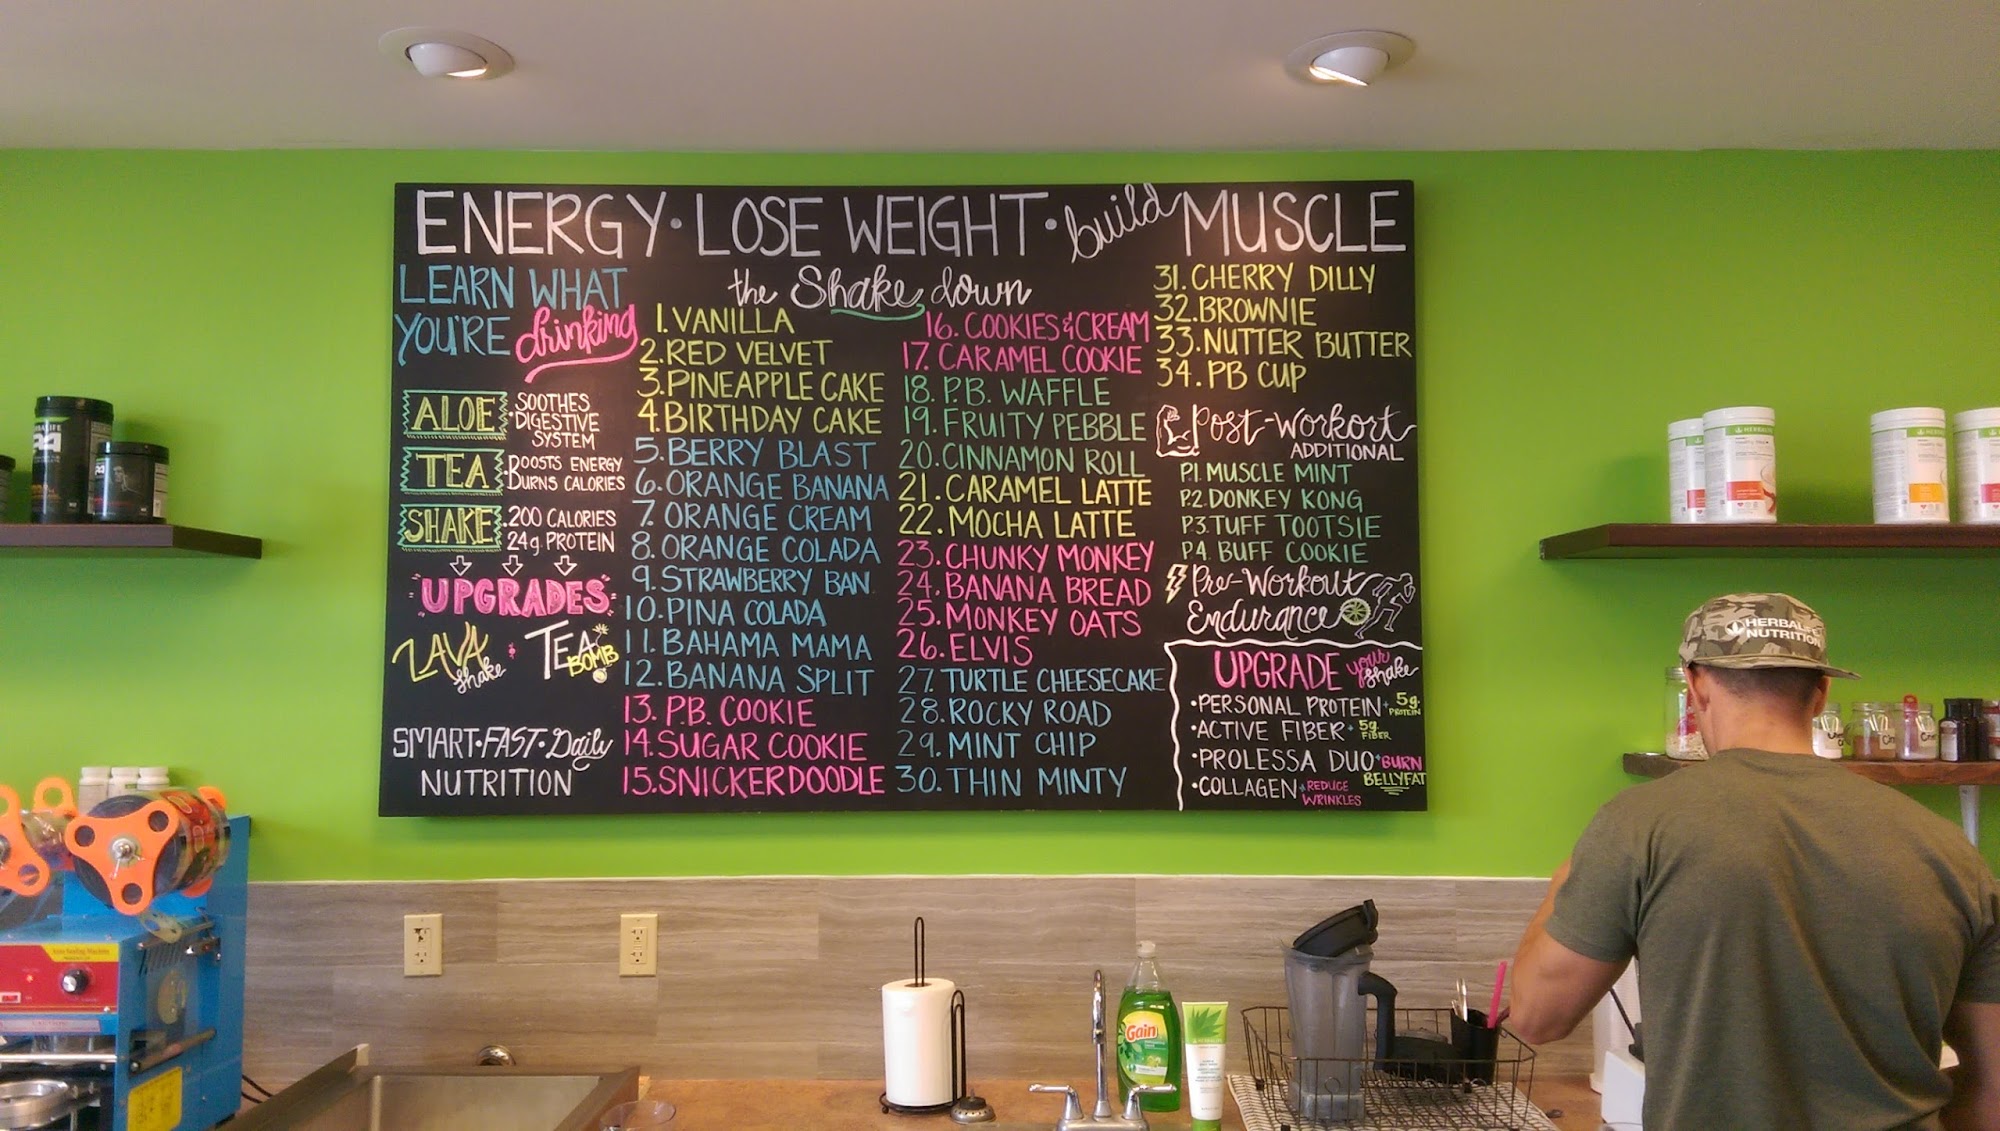 ENERGY · LOSE WEIGHT · build MUSCLE
LEARN WHAT
YOU'RE drinking
ALOE
· SOOTHES
DIGESTIVE
SYSTEM
TEA
· BOOSTS ENERGY
· BURNS CALORIES
SHAKE
· 200 CALORIES
24g. PROTEIN
UPGRADES
LAVA shake
TEA BOMB
SMART · FAST · Daily
NUTRITION
the Shake down
1. VANILLA
2. RED VELVET
3. PINEAPPLE CAKE
4. BIRTHDAY CAKE
5. BERRY BLAST
6. ORANGE BANANA
7. ORANGE CREAM
8. ORANGE COLADA
9. STRAWBERRY BAN.
10. PINA COLADA
11. BAHAMA MAMA
12. BANANA SPLIT
13. P.B. COOKIE
14. SUGAR COOKIE
15. SNICKERDOODLE
16. COOKIES & CREAM
17. CARAMEL COOKIE
18. P.B. WAFFLE
19. FRUITY PEBBLE
20. CINNAMON ROLL
21. CARAMEL LATTE
22. MOCHA LATTE
23. CHUNKY MONKEY
24. BANANA BREAD
25. MONKEY OATS
26. ELVIS
27. TURTLE CHEESECAKE
28. ROCKY ROAD
29. MINT CHIP
30. THIN MINTY
31. CHERRY DILLY
32. BROWNIE
33. NUTTER BUTTER
34. PB CUP
Post-Workout
ADDITIONAL
P.1. MUSCLE MINT
P.2. DONKEY KONG
P.3. TUFF TOOTSIE
P.4. BUFF COOKIE
Pre-Workout
Endurance
UPGRADE your shake
· PERSONAL PROTEIN + 5g. PROTEIN
· ACTIVE FIBER + 5g. FIBER
· PROLESSA DUO + BURN BELLYFAT
· COLLAGEN + REDUCE WRINKLES
HERBALIFE
NUTRITION
Gain